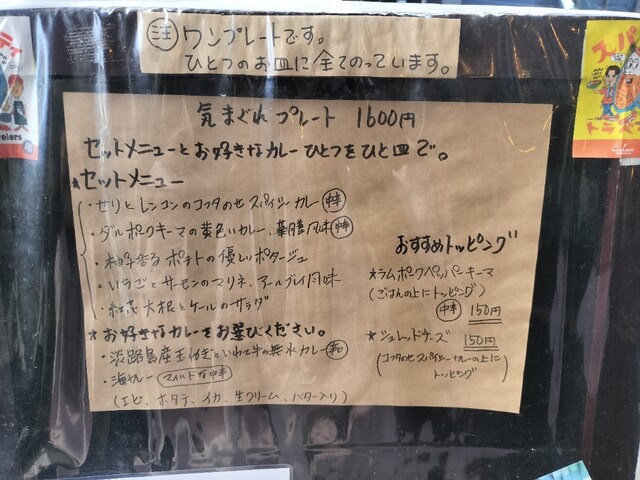 注 ワンプレートです。
ひとつのお皿に全てのっています。
気まぐれプレート 1600円
セットメニューとお好きなカレーひとつをひと皿で。
★セットメニュー
・せりとレンコンのコフタのせスパイシーカレー 中辛
・ダルポークキーマの黄色いカレー、薬膳風味 中辛
・柚子香るポテトの優しいポタージュ
・いちごとサーモンのマリネ、アールグレイ風味
・紅芯大根とケールのサラダ
★お好きなカレーをお選びください。
・淡路島産玉ねぎといわて牛の無水カレー 辛口
・海カレー マイルドな中辛
(エビ、ホタテ、イカ、生クリーム、バター入り)
おすすめトッピング
★ラムポークペッパーキーマ
(ごはんの上にトッピング)
中辛 150円
★シュレッドチーズ 150円
(コフタのせスパイシーカレーの上に
トッピング)
スパイ
トラベ